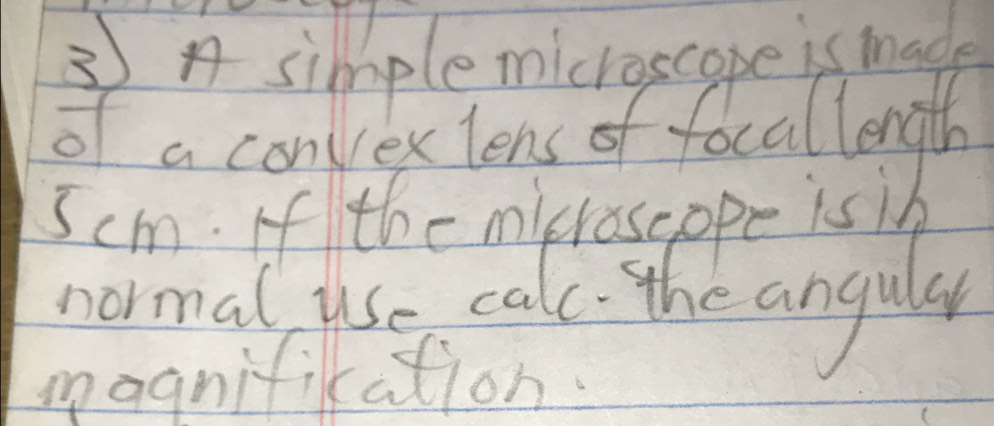 3) A simple microscope is made
of a convex lens of focal length
5cm. If the microscope is in
normal use calc. the angular
magnification.